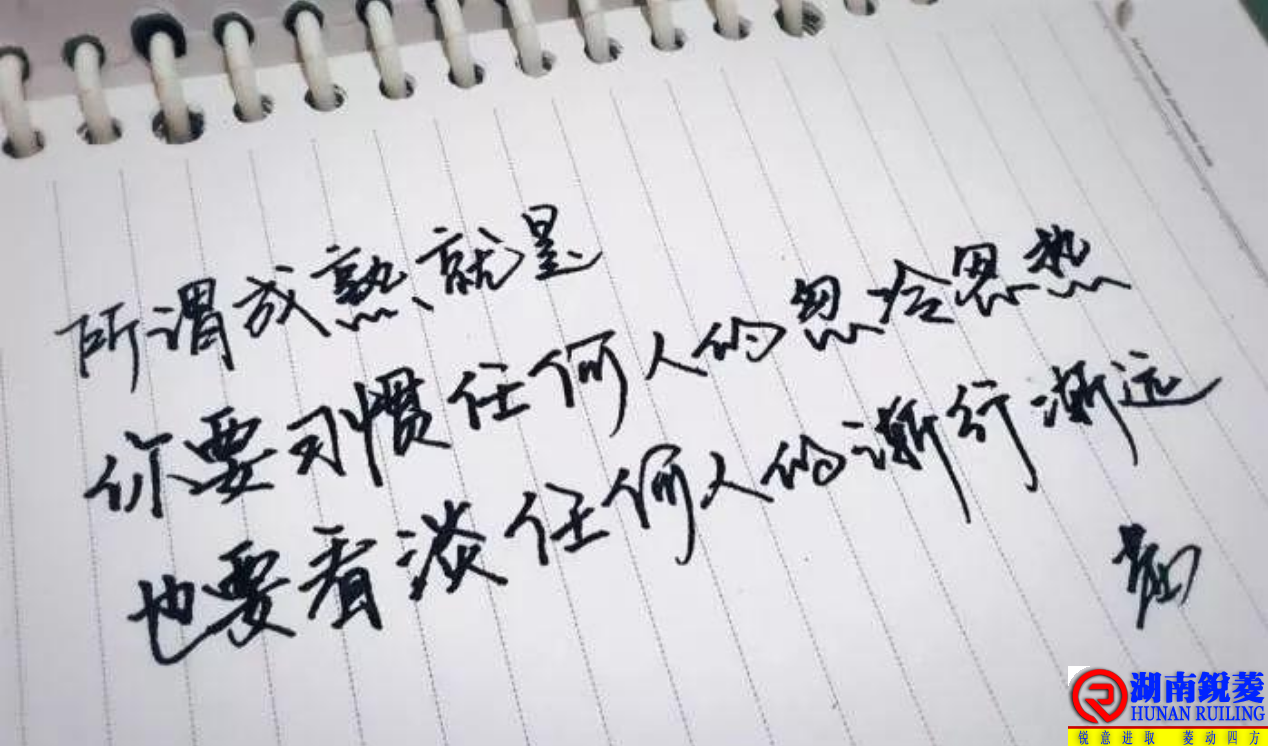 所谓成熟就是
你要习惯任何人的忽冷忽热
也要看淡任何人的渐行渐远
湖南锐菱
HUNAN RUILING
锐意进取 菱动四方